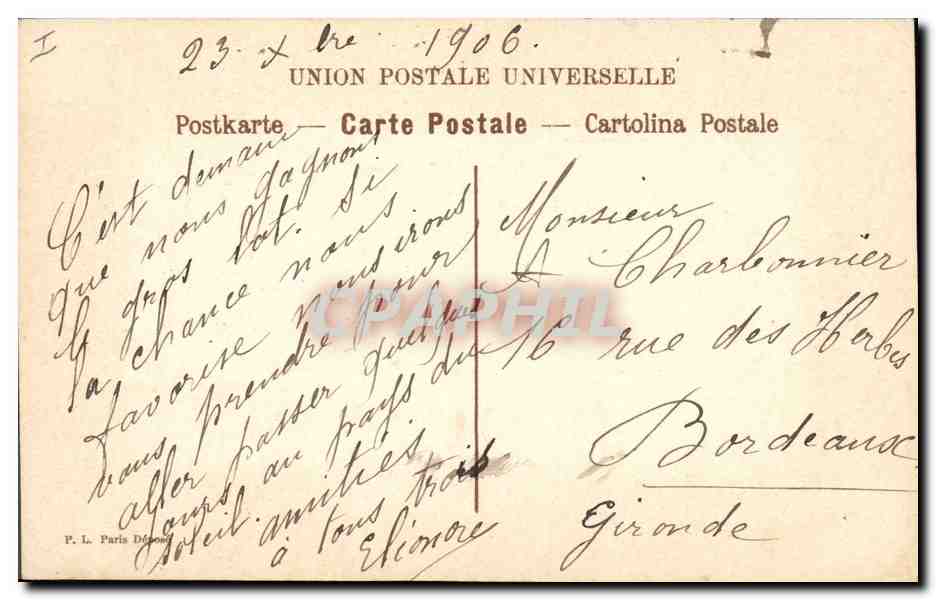 I
23 Xbre 1906.
UNION POSTALE UNIVERSELLE
Postkarte — Carte Postale — Cartolina Postale
C'est demain
que nous gagnons
le gros lot. Si
la chance nous
favorise nous irons
vous prendre pour
aller passer quelques
jours au pays du
soleil. amitiés
à tous trois
Eléonore
Monsieur
A Charbonnier
16 rue des Herbes
Bordeaux
Gironde
P. L. Paris Déposé
CPAPHIL